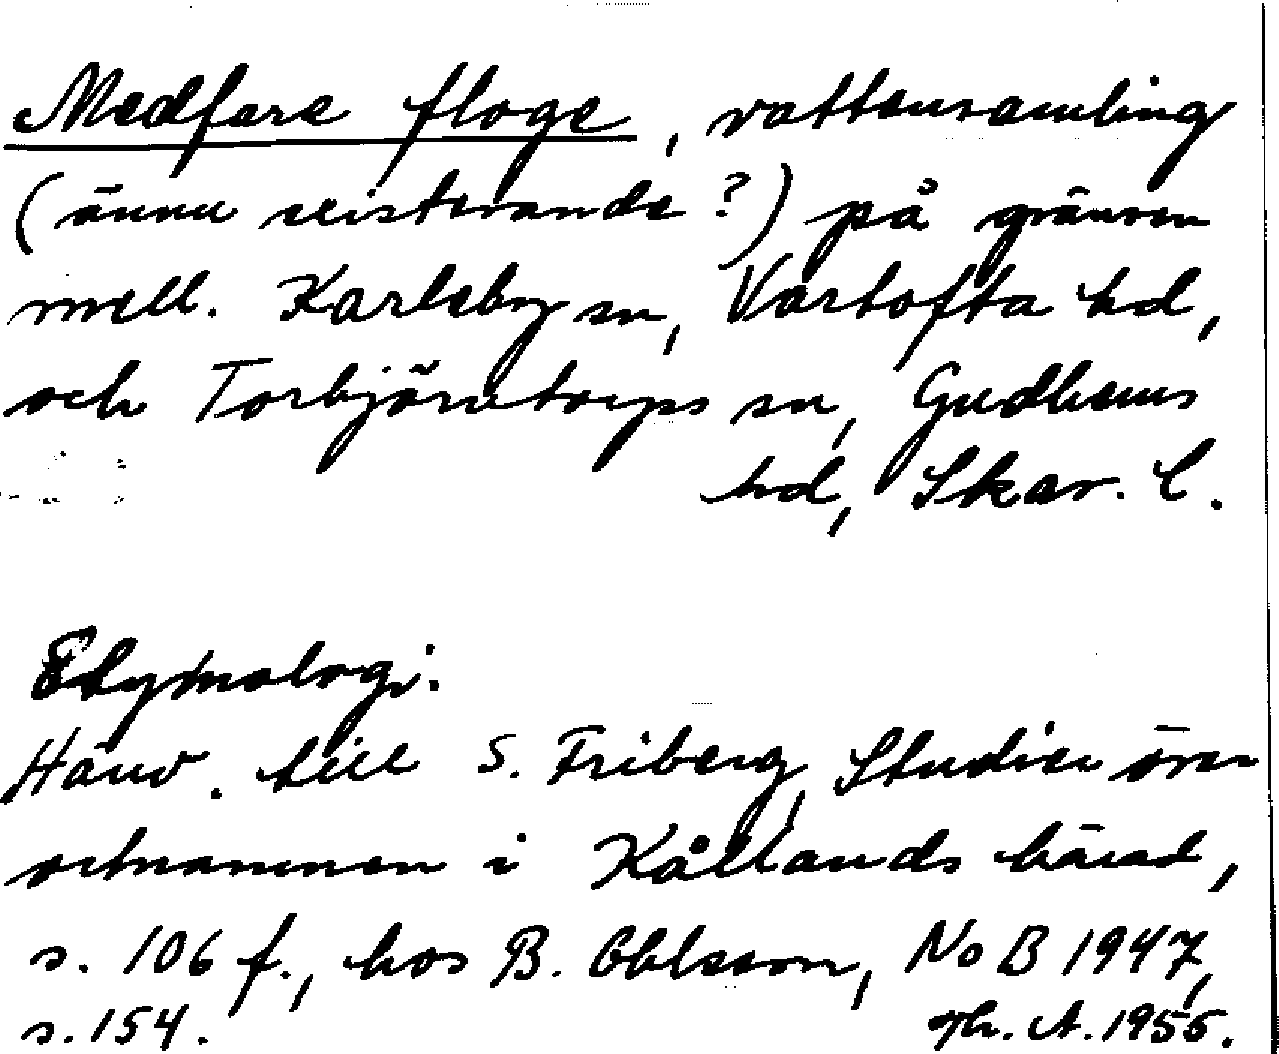 Medfare floge, vattensamling
(ännu existerande?) på gränsen
mell. Karleby sn, Vartofta hd,
och Torbjörntorps sn, Gudhems
hd, Skar. l.
Etymologi.
Hänv. till S. Friberg, Studier över
ortnamnen i Kållands härad,
s. 106 f., hos B. Ohlsson, NoB 1947,
s. 154.
Th. A. 1955.